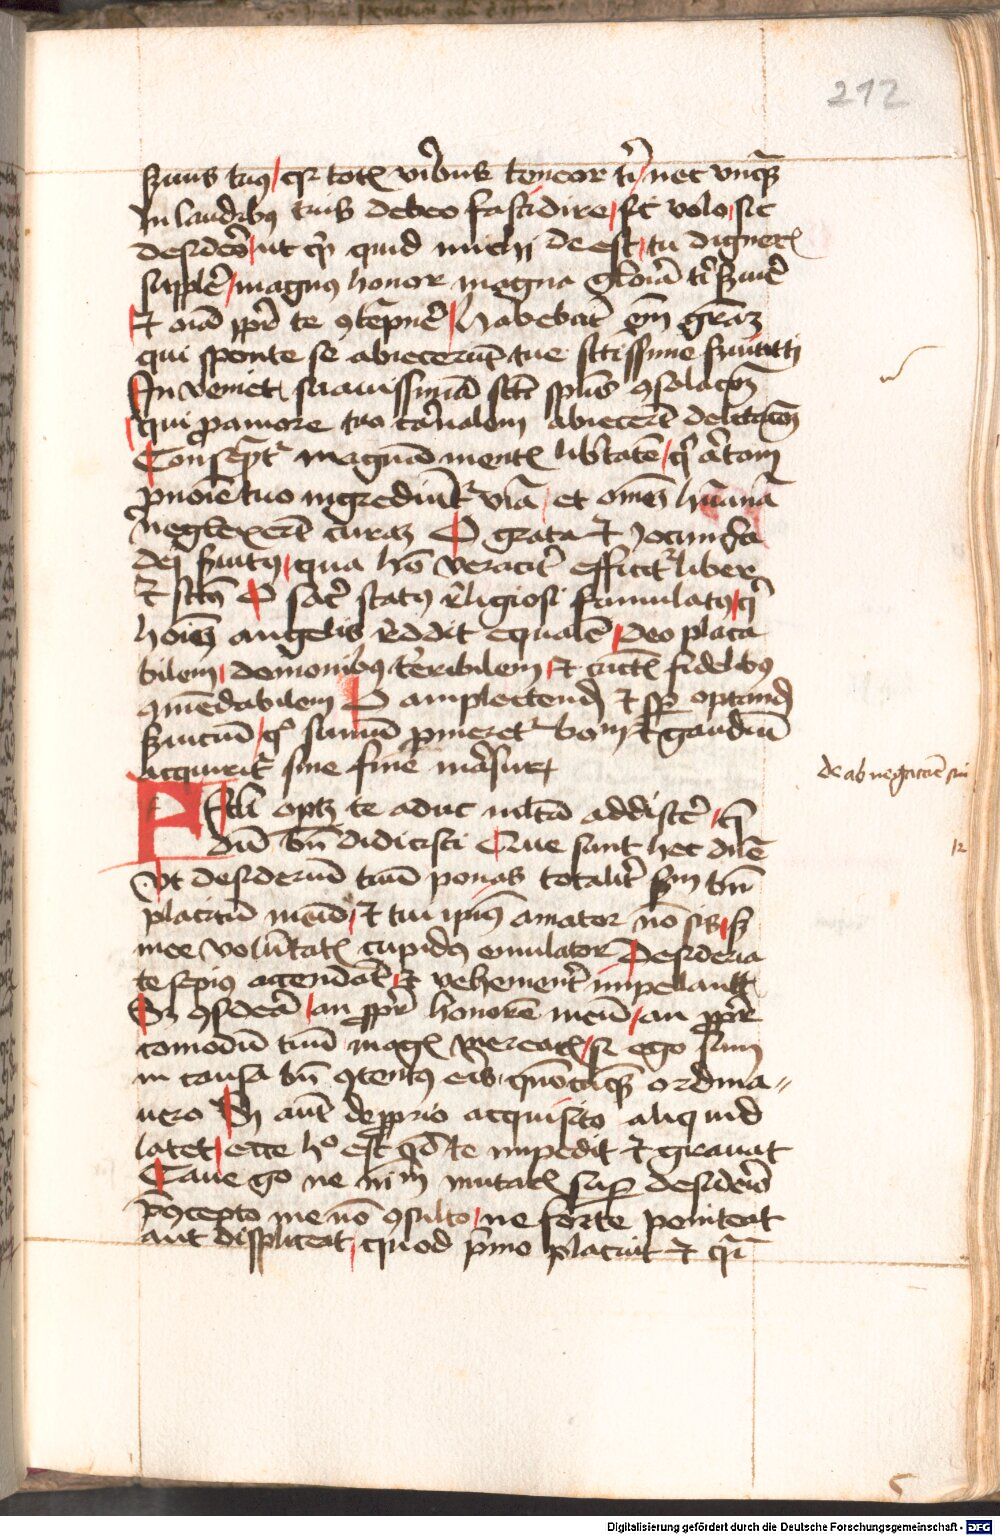 212
seruus tuus qui totis viribus teneor tibi nec vnquam
In laudibus tuis debeo fastidire sic volo sic
desidero ut quidquid michi deest tu digneris
supplere magnus honor magna gloria tibi seruire
Et omnia propter te contempnere habebunt enim graciam
qui sponte se abiecerunt tue sanctissime seruituti
Inuenient suauissimam sancti spiritus consolacionem
qui pro amore tuo carnalem abiecerunt delectacionem
Consequentur magnam mentis libertatem qui artam
pro nomine tuo ingrediuntur viam et omnem humanam
neglexerunt curam O grata et Jocunda
dei seruitus qua homo veraciter efficitur liber
et sanctus O sacer status religiosi famulatus qui
hominem angelis reddit equalem Deo placa
bilem demonibus terribilem et cunctis fidelibus
commendabilem O amplectendum et semper optandum
seruicium quo summum promeretur bonum et gaudium
acquiritur sine fine mansurum
Fili oportet te adhuc multa addiscere que
dum bene didicisti Que sunt hec domine
Vt desiderium tuum ponas totaliter secundum bene
placitum meum et tui ipsius amator non sis sed
mee voluntatis cupidus emulator Desideria
te sepius accendunt et vehementer impellunt
Sed considera an propter honorem meum an propter
comodum tuum magis mouearis si ego sum
in causa bene contentus eris quomodocumque ordina-
uero Si autem de proprio acquisito aliquid
latet ecce hoc est quod te impedit et grauat
Caue ergo ne nimium innitaris super desiderio
preconcepto me non consulto ne forte peniteat
aut displiceat quod primo placuit et quasi
de abnegacione sui
12
Digitalisierung gefördert durch die Deutsche Forschungsgemeinschaft - DFG